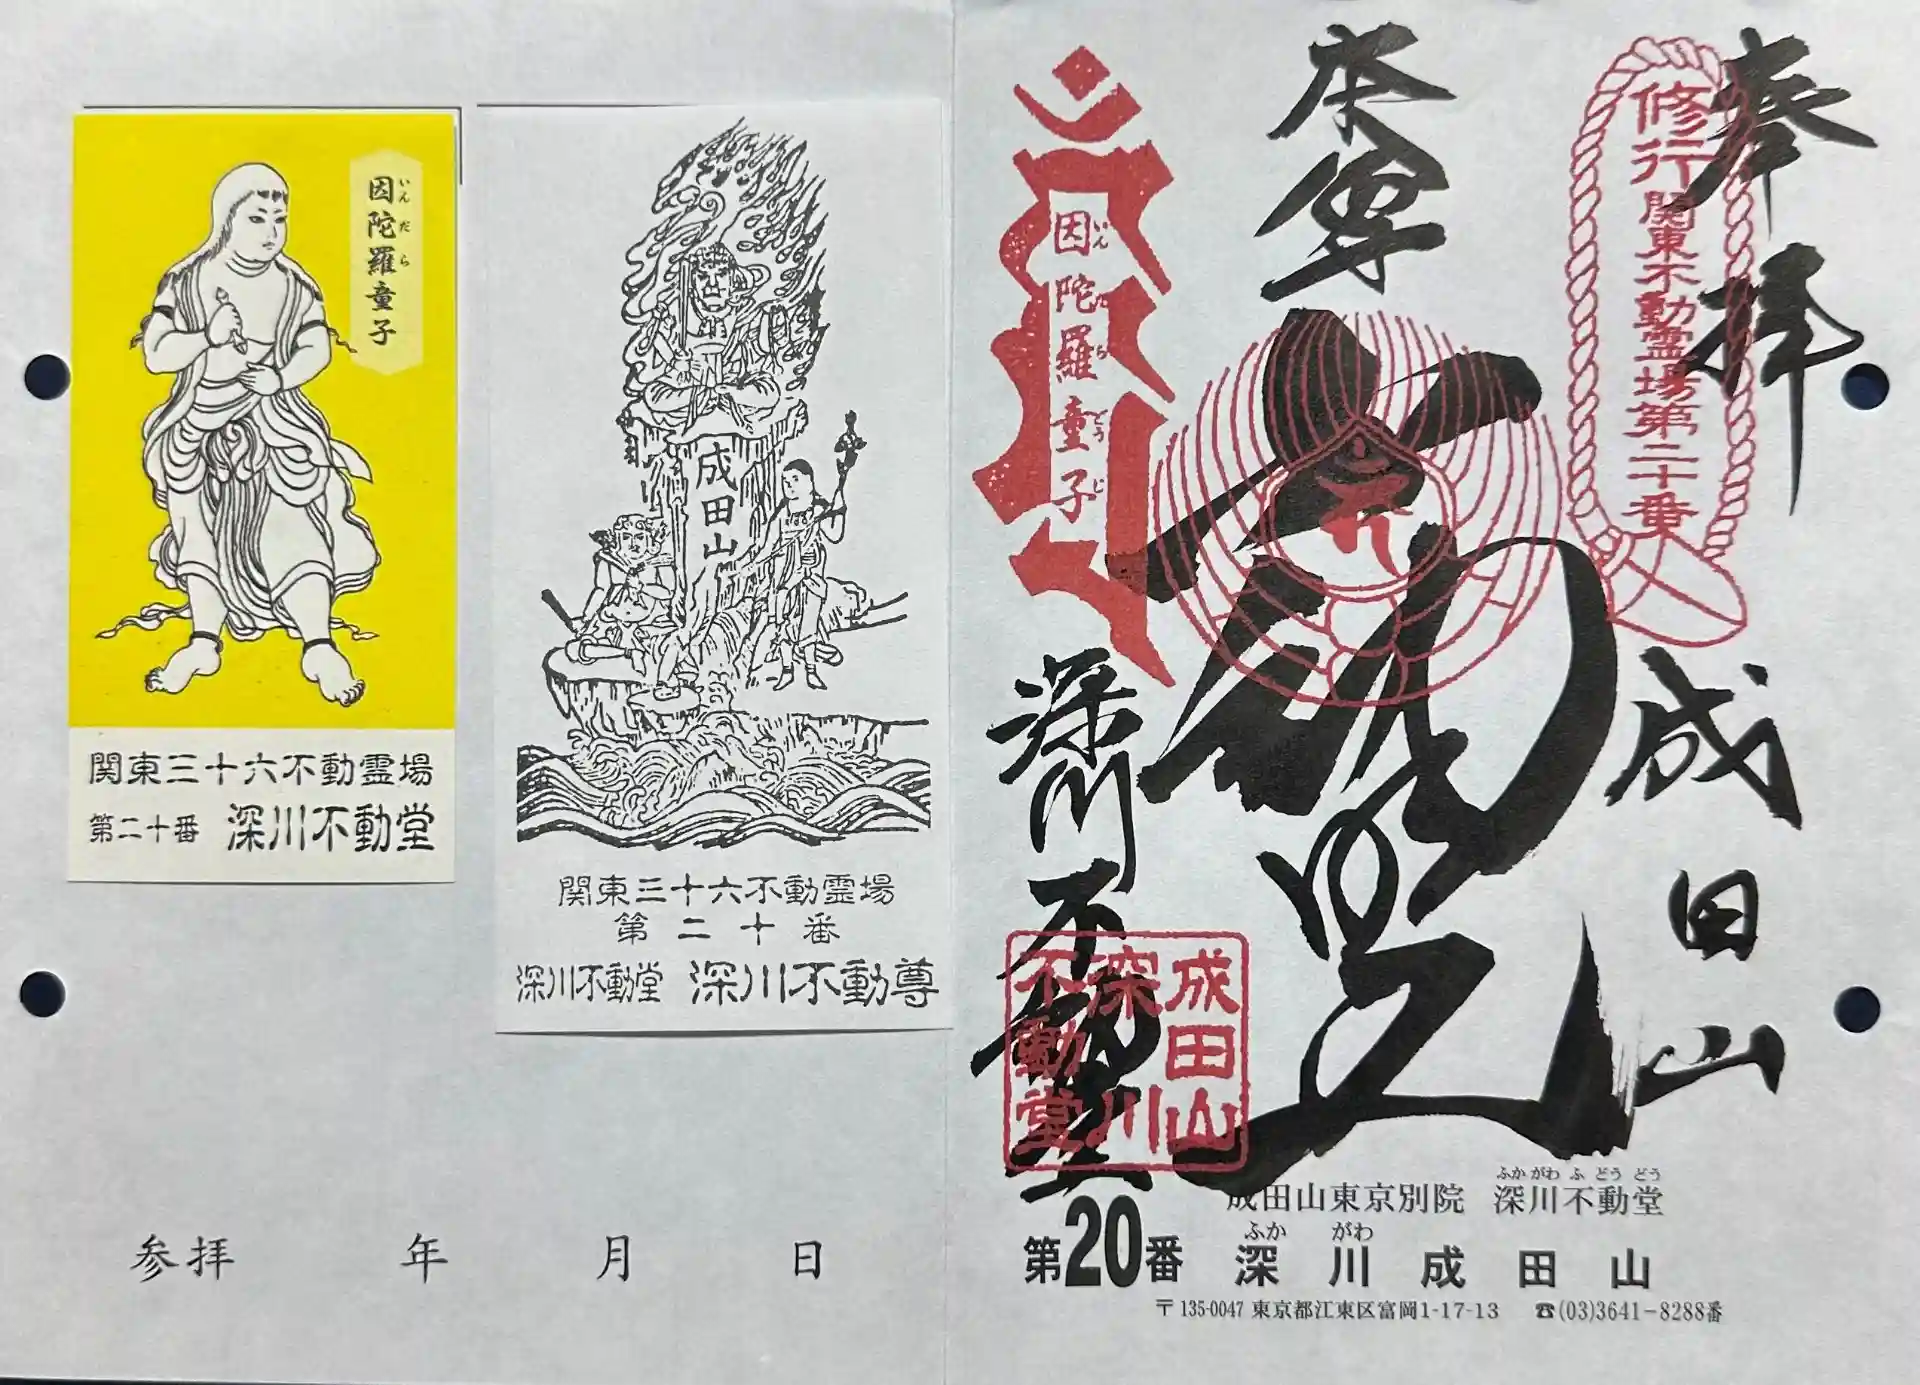 因陀羅童子
いんだら
関東三十六不動霊場
第二十番 深川不動堂
成田山
関東三十六不動霊場
第二十番
深川不動堂 深川不動尊
参拝 年 月 日
奉拝
修行
関東不動霊場第二十番
成田山
本尊
因陀羅童子
いんだらどうじ
深川不動堂
成田山
深川
不動堂
成田山東京別院 深川不動堂
ふかがわふどうどう
第20番 深川成田山
ふかがわ
〒135-0047 東京都江東区富岡1-17-13 ☎(03)3641-8288番